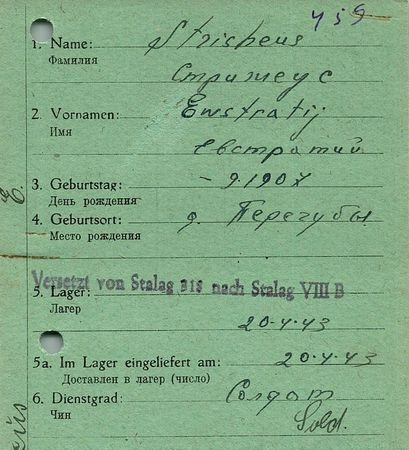 459
1. Name: Strisheus
Фамилия
Стрижеус
2. Vornamen: Ewstratij
Имя
Евстратий
3. Geburtstag: - 9.1907
День рождения
4. Geburtsort: д. Перегубы
Место рождения
Versetzt von Stalag 318 nach Stalag VIII B
5. Lager:
Лагер
20.4.43
5a. Im Lager eingeliefert am: 20.4.43
Доставлен в лагер (число)
6. Dienstgrad: Солдат
Чин
Sold.